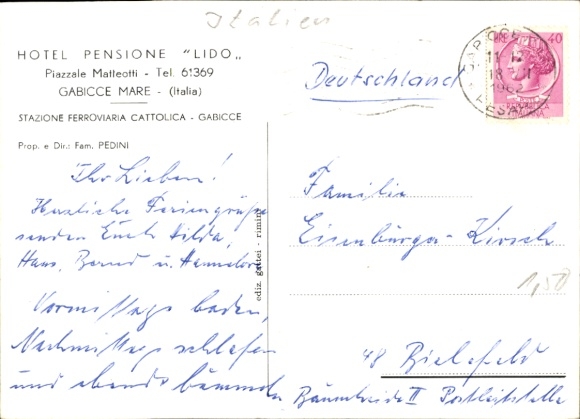 Italien
HOTEL PENSIONE "LIDO„
Piazzale Matteotti - Tel. 61369
GABICCE MARE - (Italia)
STAZIONE FERROVIARIA CATTOLICA - GABICCE
Prop. e Dir.: Fam. PEDINI
Ihr Lieben!
Herzliche Feriengrüße
senden Euch Hilda,
Hans, Bernd u. Hannelore
Vormittags baden,
Nachmittag schlafen
und abends bummeln
ediz. gattei - rimini
Deutschland
40
GABICCE
11
18
1962
PESARO
ITALIANA
Familie
Eisenbürger-Kirsch
1,50
48 Bielefeld
Bäumheide II Postleitstelle